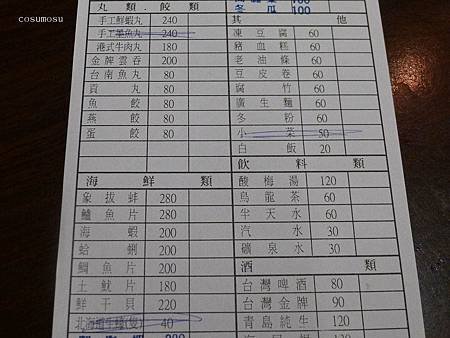 cosumosu
冬 瓜 100
丸 類 . 餃 類
手工鮮蝦丸 240
手工墨魚丸 240
港式牛肉丸 180
金牌雲吞 200
台南魚丸 80
貢 丸 80
魚 餃 80
燕 餃 80
蛋 餃 80
其 他
凍豆腐 60
豬血糕 60
老油條 60
豆皮卷 60
腐 竹 60
廣生麵 60
冬 粉 60
小 菜 50
白 飯 20
海 鮮 類
象拔蚌 280
鱸魚片 280
海 蝦 200
蛤 蜊 200
鯛魚片 200
土魠片 180
鮮干貝 220
北海道生蠔(隻) 40
飲 料 類
酸梅湯 120
烏龍茶 60
半天水 60
汽 水 30
礦泉水 30
酒 類
台灣啤酒 80
台灣金牌 90
青島純生 120